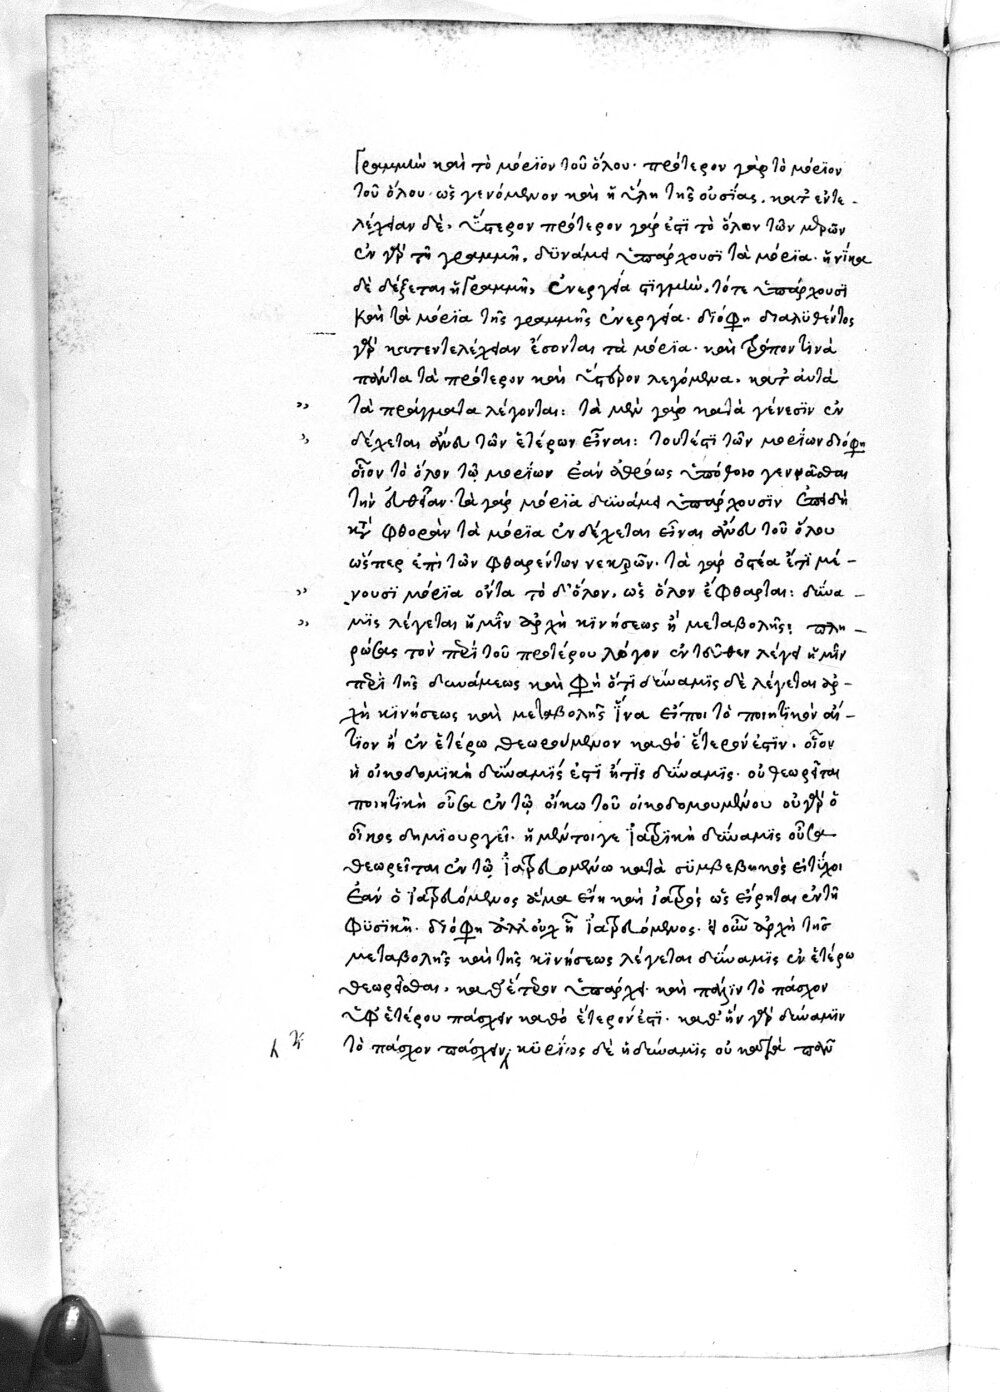 γραμμὴν καὶ τὸ μόριον τοῦ ὅλου· πρότερον γὰρ τὸ μόριον
τοῦ ὅλου· ὡς γενόμενον καὶ ἡ ὕλη τῆς οὐσίας. κατ' ἐντε-
λέχειαν δὲ, ὕστερον πρότερον γὰρ ἐστὶ τὸ ὅλον τῶν μερῶν
ἐν γὰρ τῆ γραμμῆ, δυνάμει ὑπάρχουσι τὰ μόρια· ἡνίκα
δὲ δέξεται ἡ γραμμὴ, ἐνεργεία στιγμὴν, τότε ὑπάρχουσι
καὶ τὰ μόρια τῆς γραμμῆς ἐνεργεία· διό φη διαλυθέντος
γὰρ κατ' ἐντελέχειαν ἔσονται τὰ μόρια· καὶ τρόπον τινὰ
πάντα τὰ πρότερον καὶ ὕστερον λεγόμενα, κατ' αὐτὰ
τὰ πράγματα λέγονται: τὰ μὲν γὰρ κατὰ γένεσιν ἐν
δέχεται ἄνευ τῶν ἑτέρων εἶναι: τουτέστι τῶν μορίων διό φη
οἷον τὸ ὅλον τῶν μορίων ἐὰν ἀθρόως ὑπόθοιο γενέσθαι
τὴν εὐθεῖαν· τὰ γὰρ μόρια δυνάμει ὑπάρχουσιν ἐπειδὴ
κατὰ φθορὰν τὰ μόρια ἐνδέχεται εἶναι ἄνευ τοῦ ὅλου
ὥσπερ ἐπὶ τῶν φθαρέντων νεκρῶν· τὰ γὰρ ὀστέα ἔτι μέ-
νουσι μόρια ὄντα τὸ δ' ὅλον, ὡς ὅλον ἔφθαρται: δύνα-
μις λέγεται ἡ μὲν ἀρχὴ κινήσεως ἢ μεταβολῆς: πλη-
ρώσας τὸν περὶ τοῦ προτέρου λόγον ἐντεῦθεν λέγει ἡμῖν
περὶ τῆς δυνάμεως καὶ φη ὅτι δύναμις δὲ λέγεται ἀρ-
χὴ κινήσεως καὶ μεταβολῆς ἵνα εἴποι τὸ ποιητικὸν αἴ-
τιον ἢ ἐν ἑτέρω θεωρούμενον καθὸ ἕτερόν ἐστιν. οἷον
ἡ οἰκοδομικὴ δύναμίς ἐστι ἥτις δύναμις· οὐ θεωρεῖται
ποιητικὴ οὖσα ἐν τῶ οἴκω τοῦ οἰκοδομουμένου οὐ γὰρ ὁ
οἶκος δημιουργεῖ· ἡ μέντοι γε ἰατρικὴ δύναμις οὖσα
θεωρεῖται ἐν τῶ ἰατρευομένω κατὰ συμβεβηκὸς εἰ τύχοι
ἐὰν ὁ ἰατρευόμενος ἅμα εἴη καὶ ἰατρός ὡς εἴρηται ἐν τῆ
φυσικῆ. διό φη ἀλλ' οὐχ ἧ ἰατρευόμενος. ἡ οὖν ἀρχὴ τῆς
μεταβολῆς καὶ τῆς κινήσεως λέγεται δύναμις ἐν ἑτέρω
θεωρεῖσθαι, καθ' ἕτερον ὑπάρχει· καὶ πάλιν τὸ πάσχον
ὑφ' ἑτέρου πάσχειν καθὸ ἕτερόν ἐστι· καθ' ἣν γὰρ δύναμιν
τὸ πάσχον πάσχειν, κυρίως δὲ ἡ δύναμις οὐ κατὰ παν